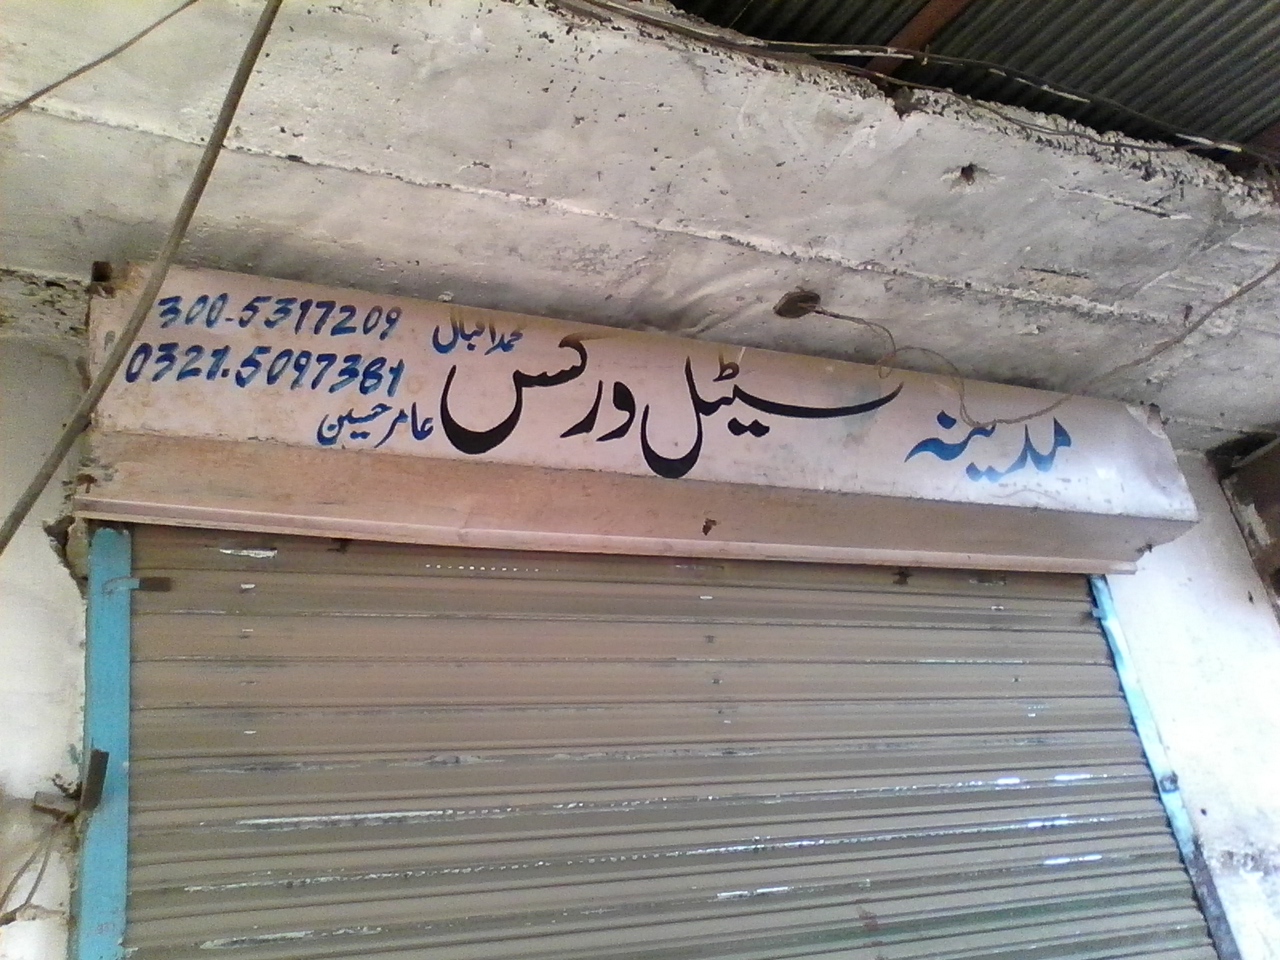 مدینہ سیٹل ورکس
محمد اقبال 300-5317209
0321.5097381
عامر حسین